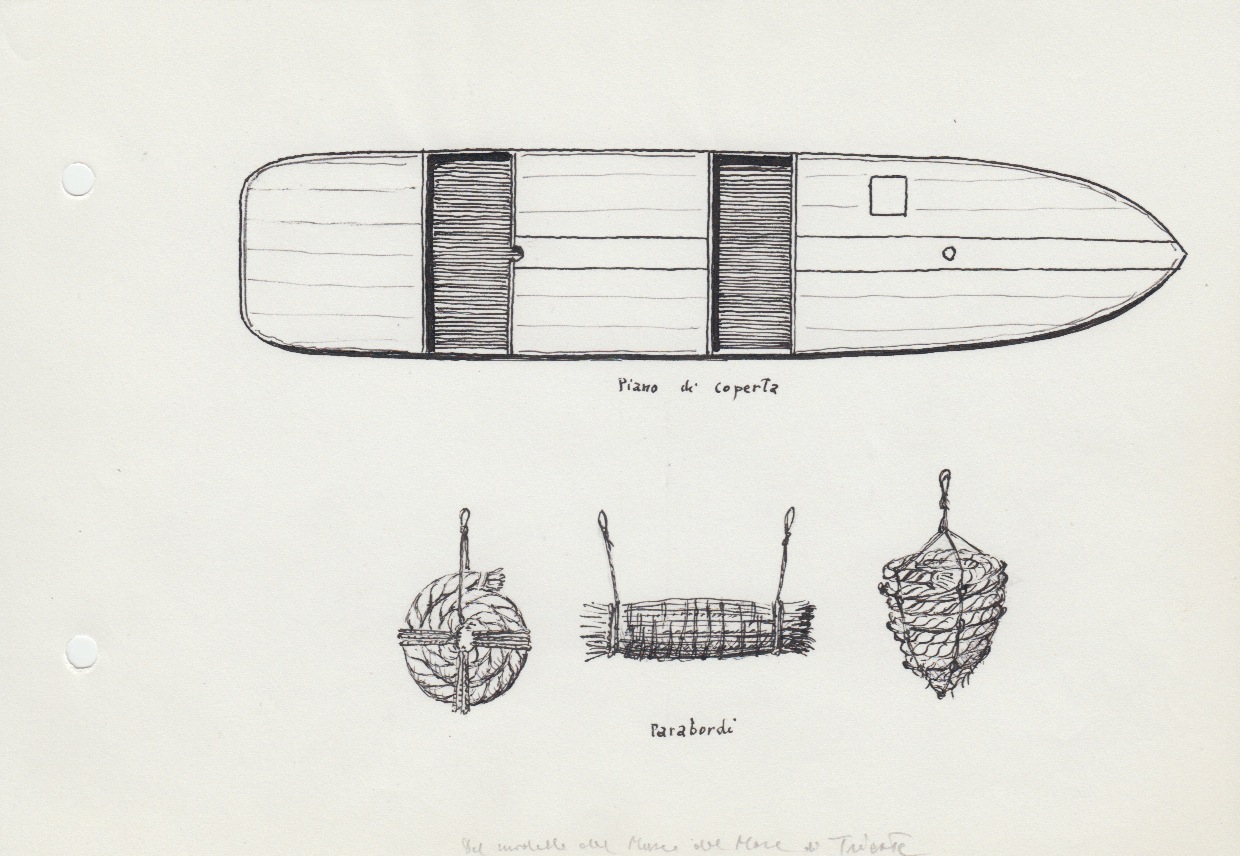 Piano di coperta
Parabordi
Del modello del Museo del Mare di Trieste